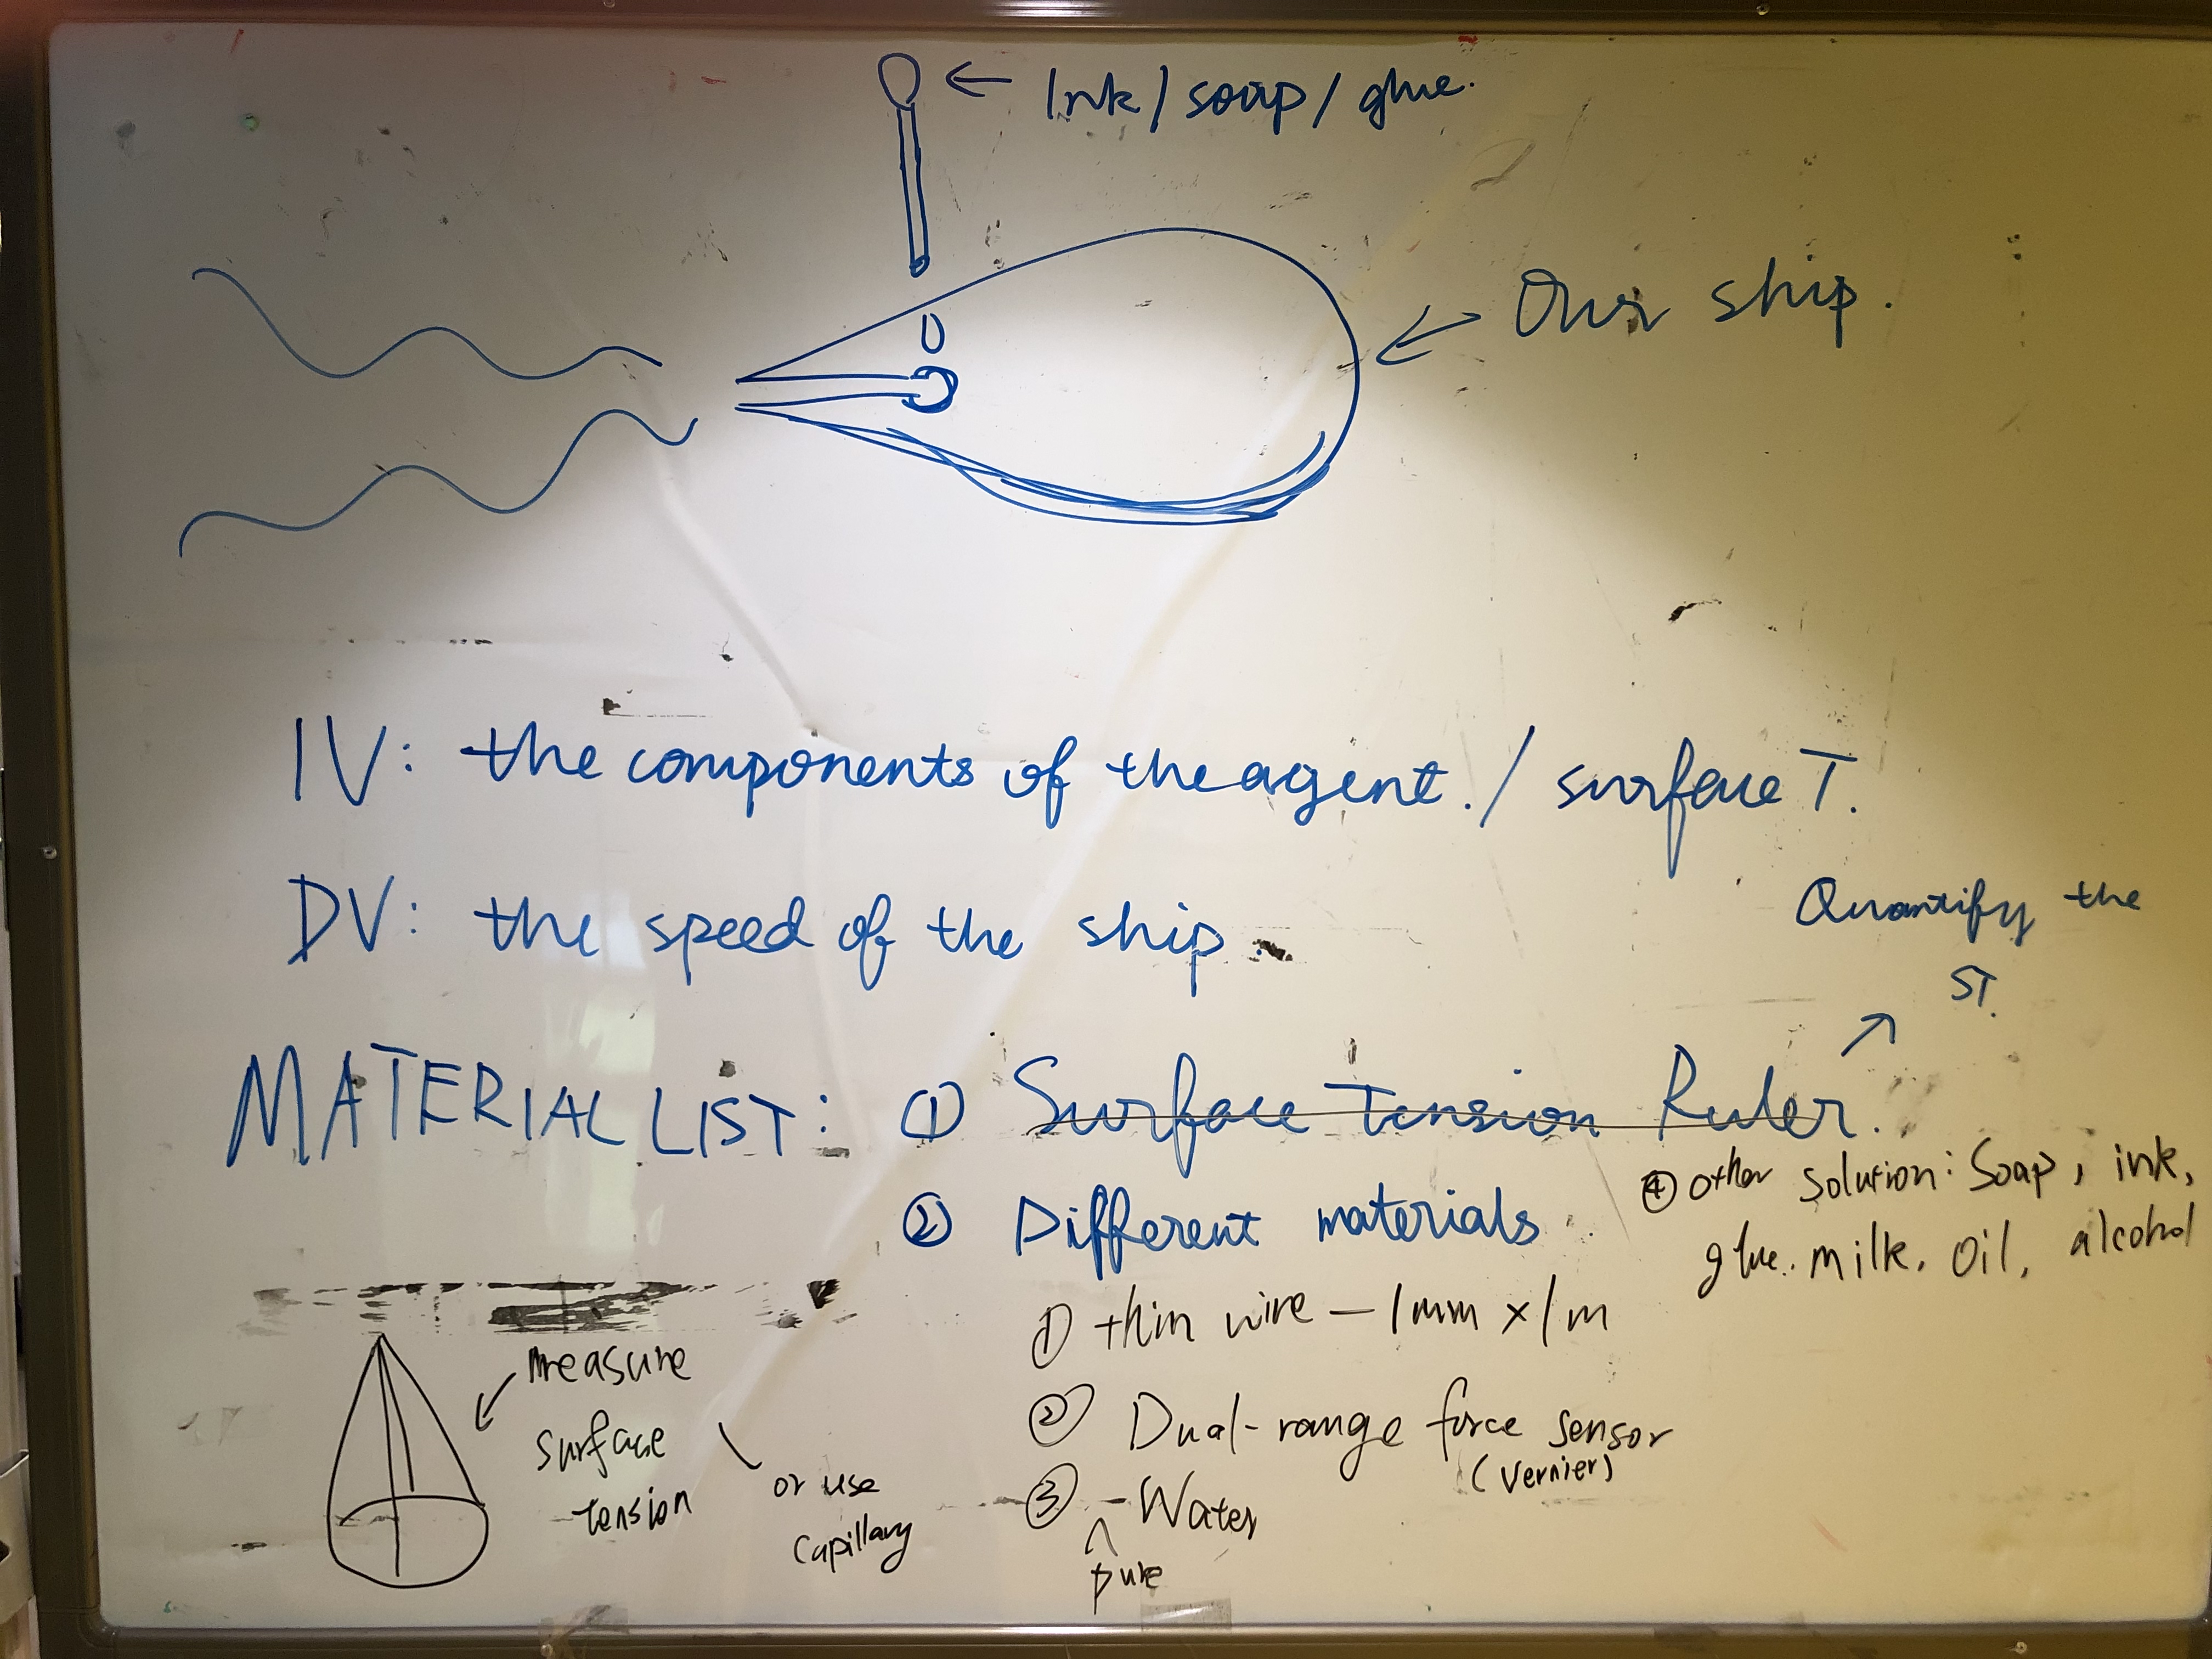 Ink/soap/glue.
Our ship.
IV: the components of the agent./ surface T.
DV: the speed of the ship.
Quantify the
ST.
MATERIAL LIST: ① Surface Tension Ruler.
② Different materials
④ other solution: Soap, ink,
glue. milk, oil, alcohol
① thin wire — 1mm x 1m
② Dual-range force sensor
(Vernier)
③ - Water
pure
measure
surface
tension
or use
capillary